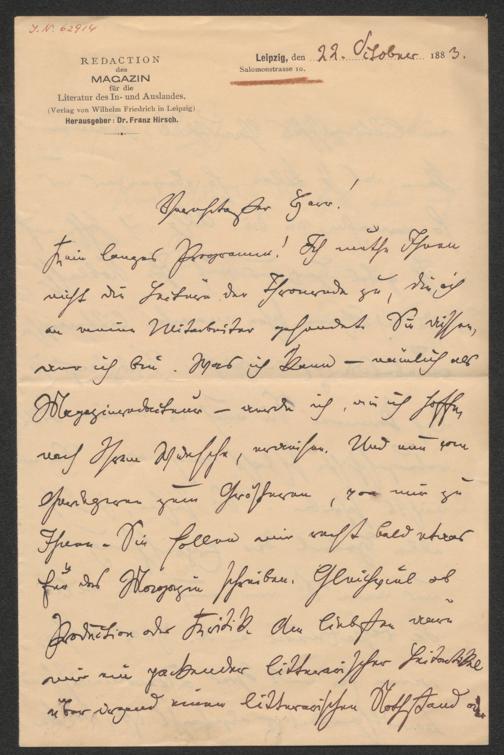 J. N. 62914
REDACTION
des
MAGAZIN
für die
Literatur des In- und Auslandes.
(Verlag von Wilhelm Friedrich in Leipzig)
Herausgeber: Dr. Franz Hirsch.
Leipzig, den 22. October 1883.
Salomonstrasse 10.
Verehrtester Herr!
Kein langes Programm! Ich muthe Ihnen
nicht die Lektüre der Thronrede zu, die ich
an meine Mitarbeiter gesendet. Sie wissen,
wer ich bin. Was ich kann — nämlich als
Magazinredakteur — werde ich, wie ich hoffe,
nach Ihrem Wunsche, erweisen. Und nun vom
Geringeren zum Größeren, von mir zu
Ihnen. Sie sollen mir recht bald etwas
für das Magazin schreiben. Gleichviel ob
Production oder Kritik. Am liebsten wäre
mir ein packender litterarischer Leitartikel
über irgend einen litterarischen Nothstand oder